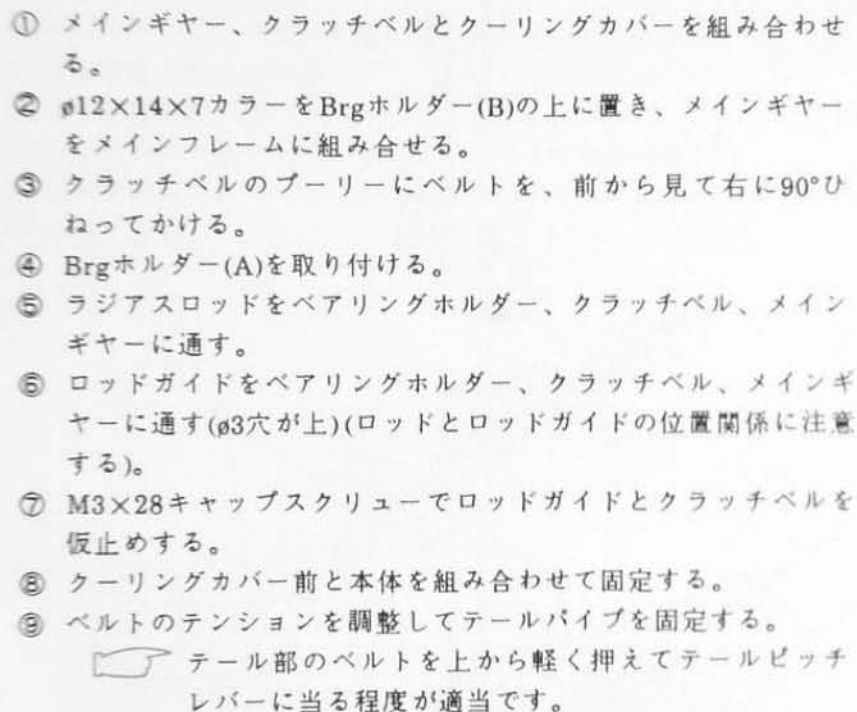 ① メインギヤー、クラッチベルとクーリングカバーを組み合わせ
る。
② ø12×14×7カラーをBrgホルダー(B)の上に置き、メインギヤー
をメインフレームに組み合せる。
③ クラッチベルのプーリーにベルトを、前から見て右に90°ひ
ねってかける。
④ Brgホルダー(A)を取り付ける。
⑤ ラジアスロッドをベアリングホルダー、クラッチベル、メイン
ギヤーに通す。
⑥ ロッドガイドをベアリングホルダー、クラッチベル、メインギ
ヤーに通す(ø3穴が上)(ロッドとロッドガイドの位置関係に注意
する)。
⑦ M3×28キャップスクリューでロッドガイドとクラッチベルを
仮止めする。
⑧ クーリングカバー前と本体を組み合わせて固定する。
⑨ ベルトのテンションを調整してテールパイプを固定する。
テール部のベルトを上から軽く押えてテールピッチ
レバーに当る程度が適当です。